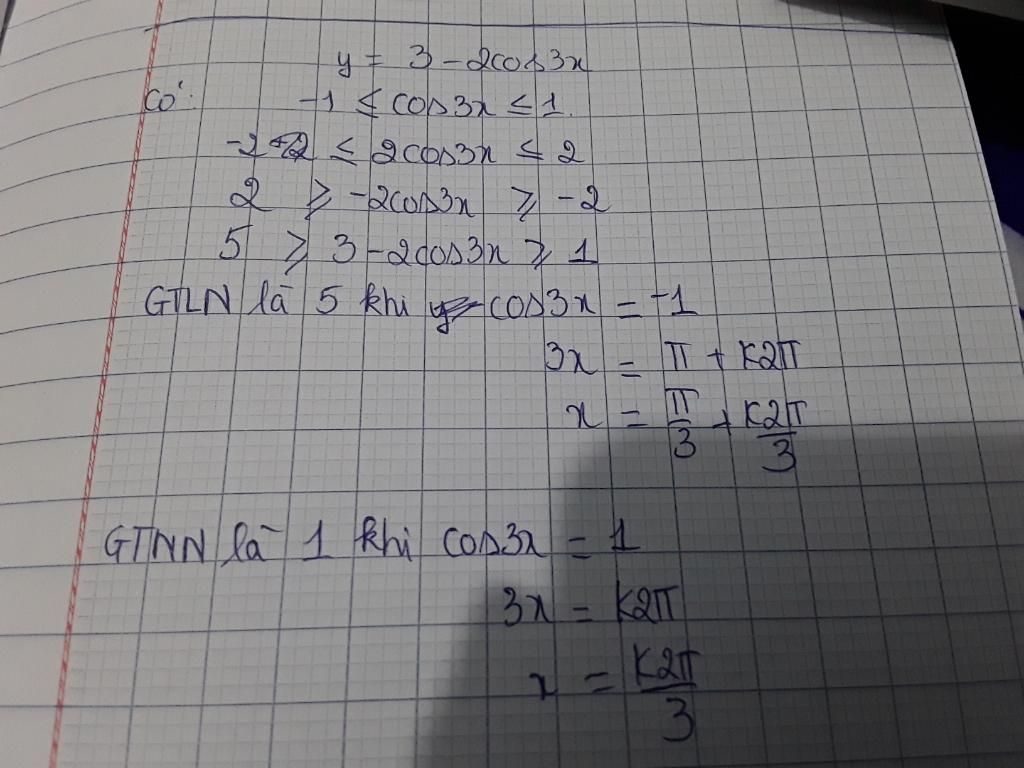 y = 3 - 2cos3x
Có: -1 ≤ cos3x ≤ 1.
-2 ≤ 2cos3x ≤ 2
2 ≥ -2cos3x ≥ -2
5 ≥ 3 - 2cos3x ≥ 1
GTLN là 5 khi cos3x = -1
3x = π + k2π
x = π/3 + k2π/3
GTNN là 1 khi cos3x = 1
3x = k2π
x = k2π/3